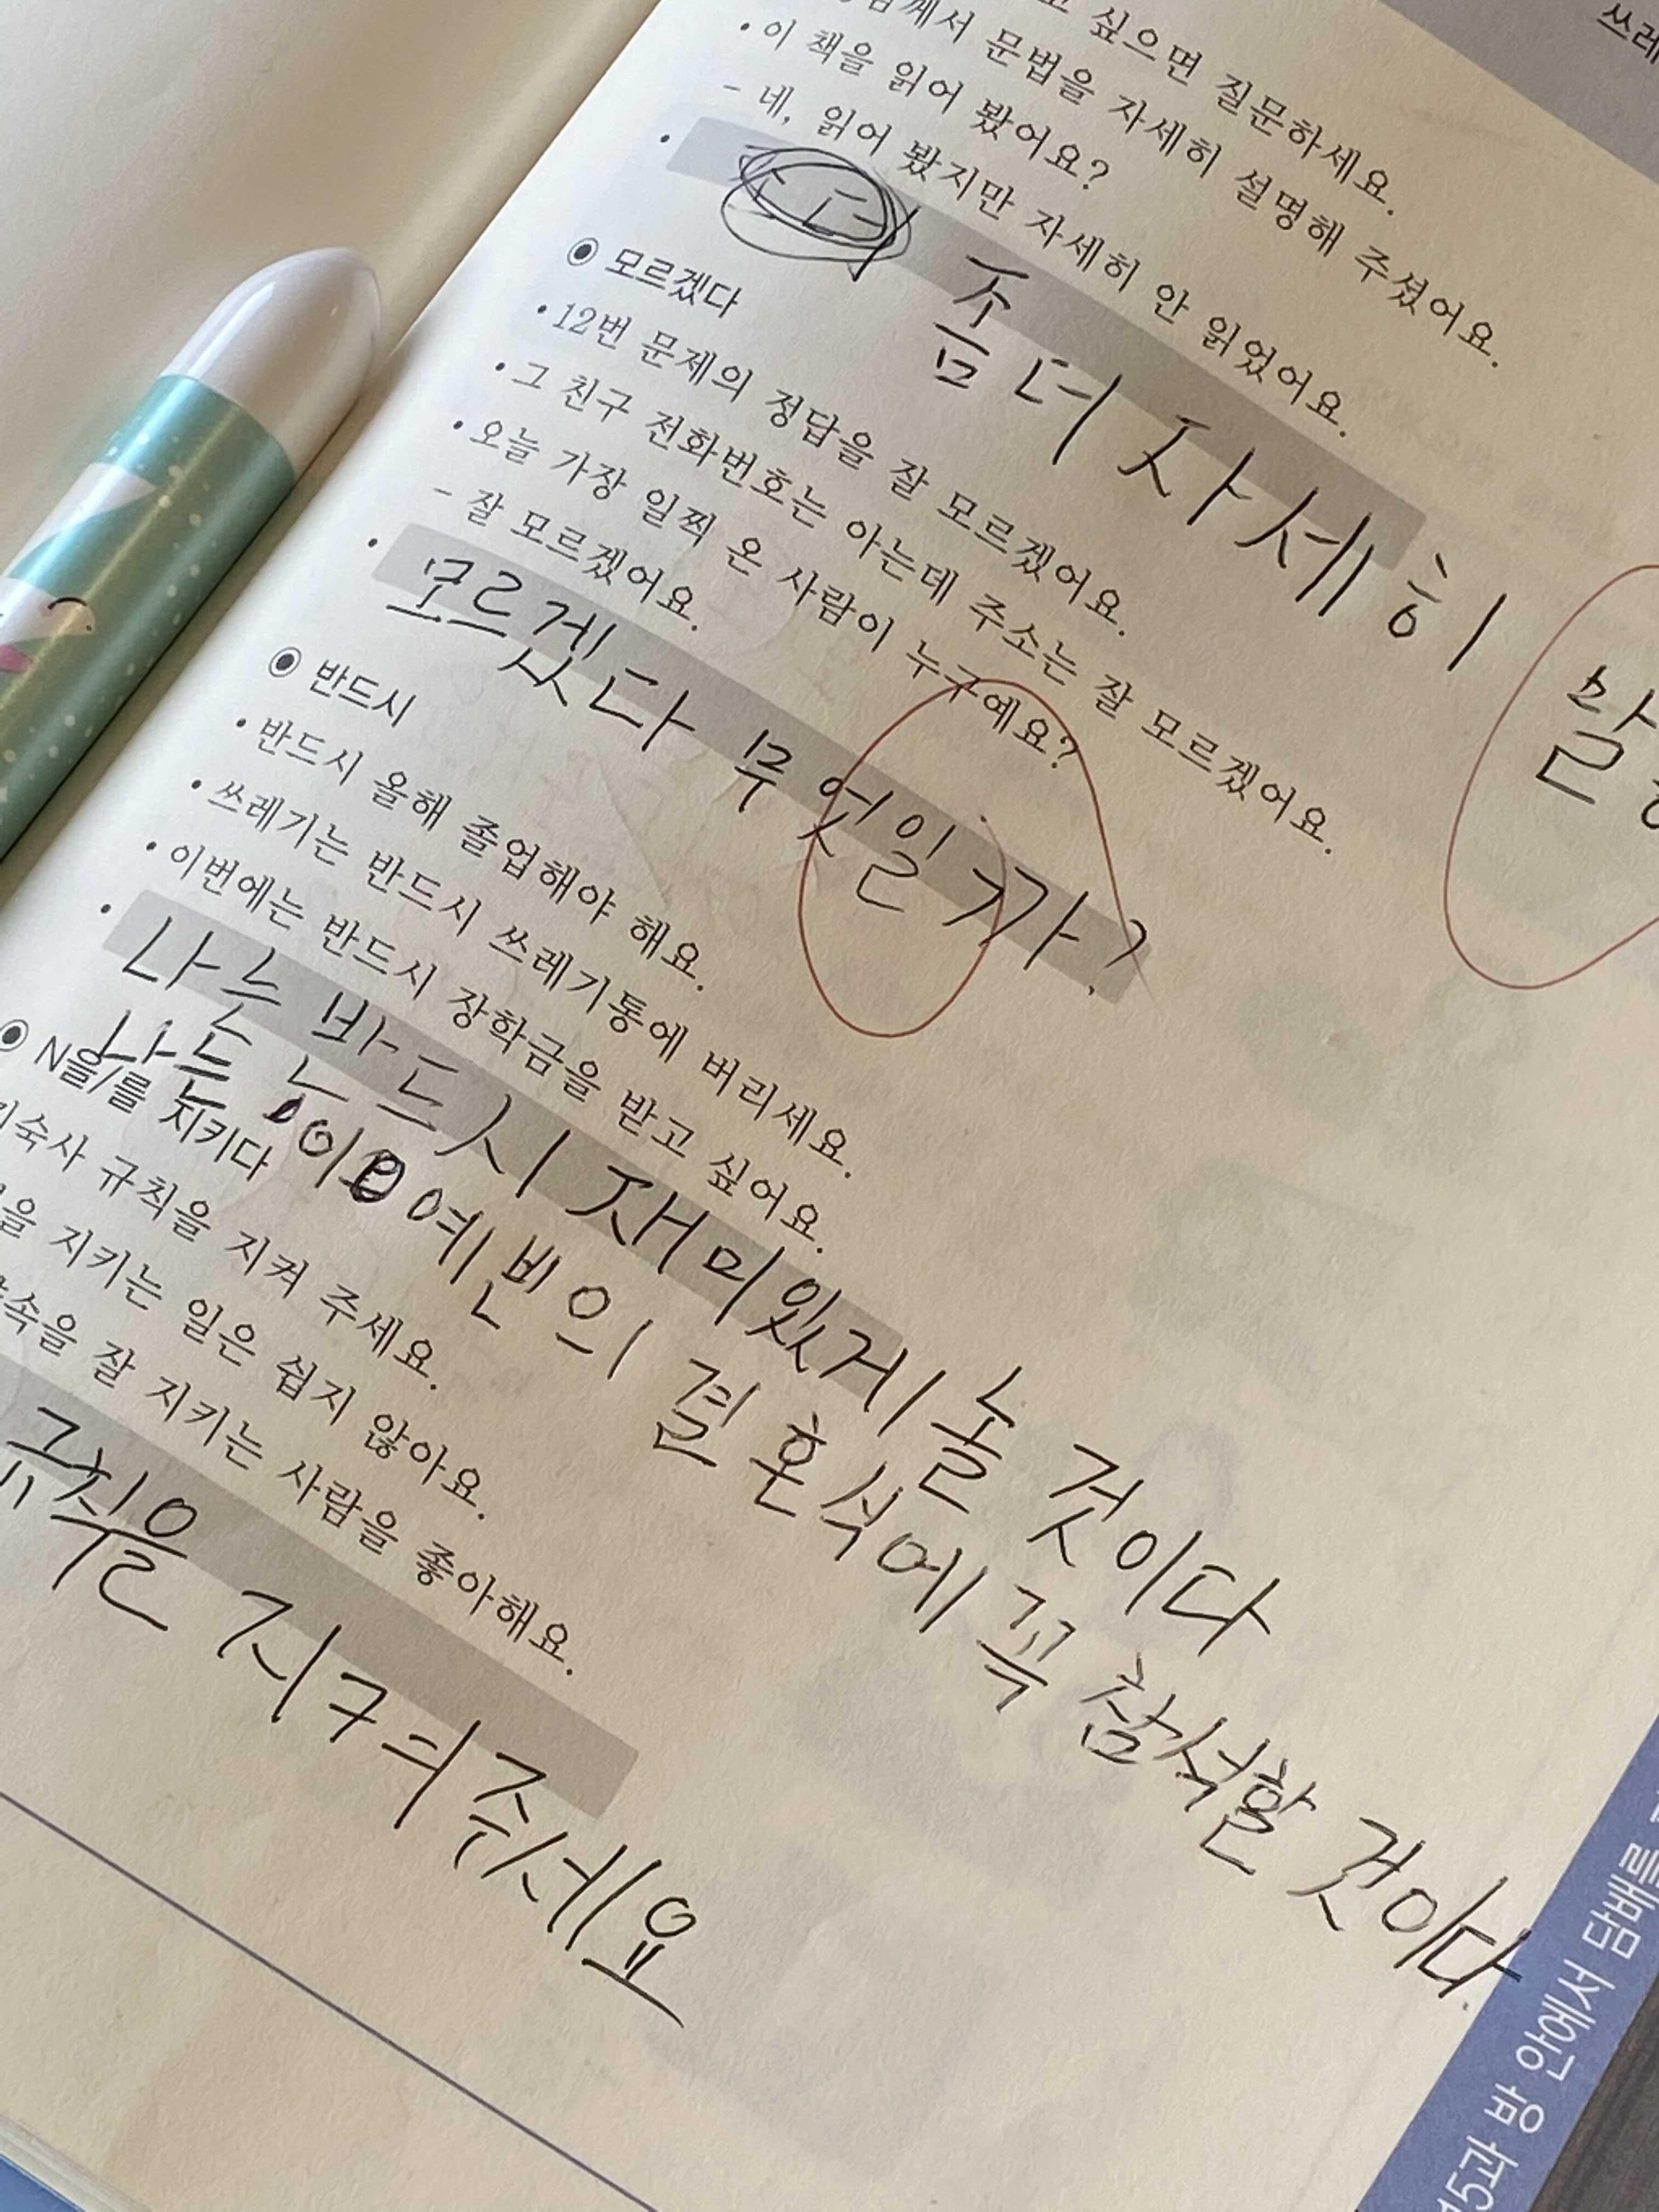 싶으면 질문하세요.
께서 문법을 자세히 설명해 주셨어요.
• 이 책을 읽어 봤어요?
- 네, 읽어 봤지만 자세히 안 읽었어요.
• 좀 더 자세히
모르겠다
• 12번 문제의 정답을 잘 모르겠어요.
• 그 친구 전화번호는 아는데 주소는 잘 모르겠어요.
• 오늘 가장 일찍 온 사람이 누구예요?
- 잘 모르겠어요.
• 모르겠다 무엇일까?
반드시
• 반드시 올해 졸업해야 해요.
• 쓰레기는 반드시 쓰레기통에 버리세요.
• 이번에는 반드시 장학금을 받고 싶어요.
• 나는 반드시 재미있게 놀 것이다
나는 예빈의 결혼식에 꼭 참석할 것이다.
N을/를 지키다
기숙사 규칙을 지켜 주세요.
을 지키는 일은 쉽지 않아요.
속을 잘 지키는 사람을 좋아해요.
규칙을 지켜주세요
쓰레
15과 방 안에서 담배를